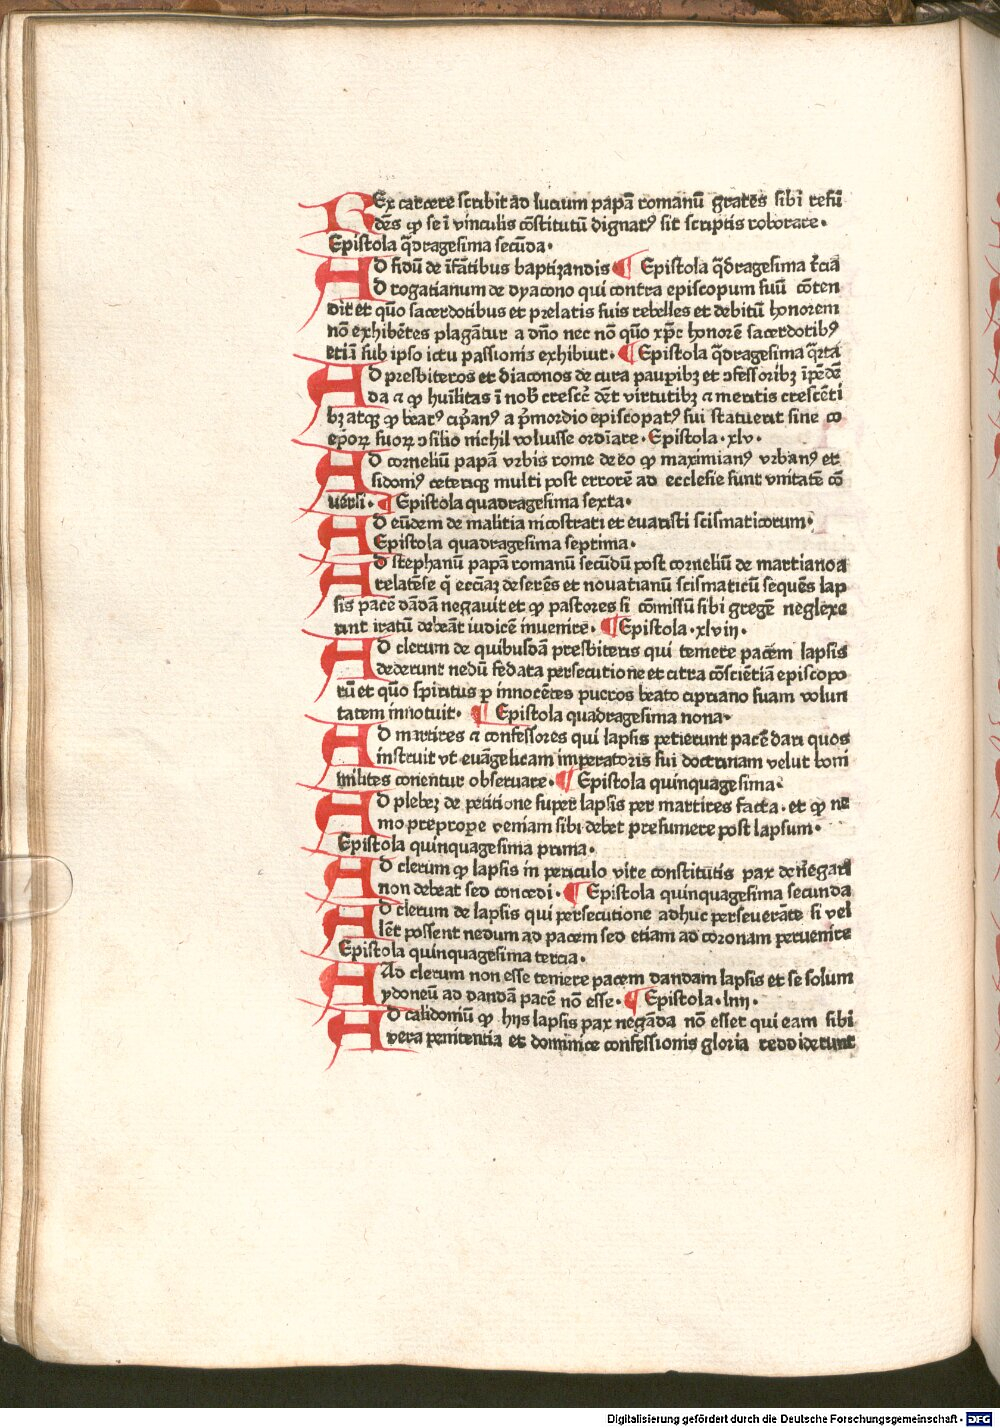 REx carcere scribit ad lucium papā romanū grates sibi refū
dēs ꝙ se ī vinculis cōstitutū dignatꝰ sit scriptis roborare.
Epistola q̄dragesima secūda.
AD fidū de īfātibus baptizandis ¶ Epistola q̄dragesima t̄cia
AD rogatianum de dyacono qui contra episcopum suū cōten
dit et quō sacerdotibus et prelatis suis rebelles et debitū honorem
nō exhibētes plagātur a dn̄o nec nō quō xp̄c honorē sacerdotibꝰ
etiā sub ipso ictu passionis exhibuit. ¶ Epistola q̄dragesima q̄rta
AD presbiteros et diaconos de cura paupibꝫ et ɔfessoribꝫ īpēdē
da ⁊ ꝙ huīlitas ī nob̄ cresc̄ dēt virtutibꝫ ⁊ meritis crescēti
bꝫ atqꝫ ꝙ beatꝰ cip̄anꝰ a p̄mordio episcopatꝰ sui statuerat sine co
ep̄oꝝ suoꝝ ɔsilio nichil voluisse ordīare. Epistola.xlv.
AD corneliū papā vrbis rome de eo ꝙ maximianꝰ vrbanꝰ et
sidoniꝰ ceteriqꝫ multi post errorē ad ecclesie sunt vnitatē cō
versi. ¶ Epistola quadragesima sexta.
AD eūdem de malitia nicostrati et evaristi scismaticorum.
Epistola quadragesima septima.
AD stephanū papā romanū secūdū post corneliū de martiano a
relatēse q̄ ecciaꝫ deserēs et novatianū scismaticū sequēs lap
sis pacē dādā negavit et ꝙ pastores si cōmissū sibi gregē neglexe
rint iratū debeāt iudicē invenire. ¶ Epistola.xlviij.
AD clerum de quibusdā presbiteris qui temere pacēm lapsis
dederunt nedū sedata persecutione et citra cōsciētiā episcopo
rū et quō spiritus p innocētes pueros beato cipriano suam volun
tatem innotuit. ¶ Epistola quadragesima nona.
AD martires ⁊ confessores qui lapsis petierunt pacē dari quos
instruit vt euāgelicam imperatoris sui doctrinam velut boni
milites conentur obseruare. ¶ Epistola quinquagesima.
AD plebeꝫ de petitione super lapsis per martires facta. et ꝙ ne
mo prepropere veniam sibi debet presumere post lapsum.
Epistola quinquagesima prima.
AD clerum ꝙ lapsis in periculo vite constitutis pax denegari
non debeat sed concedi. ¶ Epistola quinquagesima secunda
AD clerum de lapsis qui persecutione adhuc perseverāte si vel
lēt possent nedum ad pacem sed etiam ad coronam pervenire
Epistola quinquagesima tercia.
AAd clerum non esse temere pacem dandam lapsis et se solum
ydoneū ad dandā pacē nō esse. ¶ Epistola.liiij.
AD calidoniū ꝙ hijs lapsis pax negāda nō esset qui eam sibi
vera penitentia et dominice confessionis gloria reddiderunt
Digitalisierung gefördert durch die Deutsche Forschungsgemeinschaft - DFG